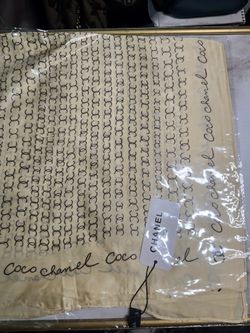 Coco chanel Coco
CHANEL
Coco chanel Coco